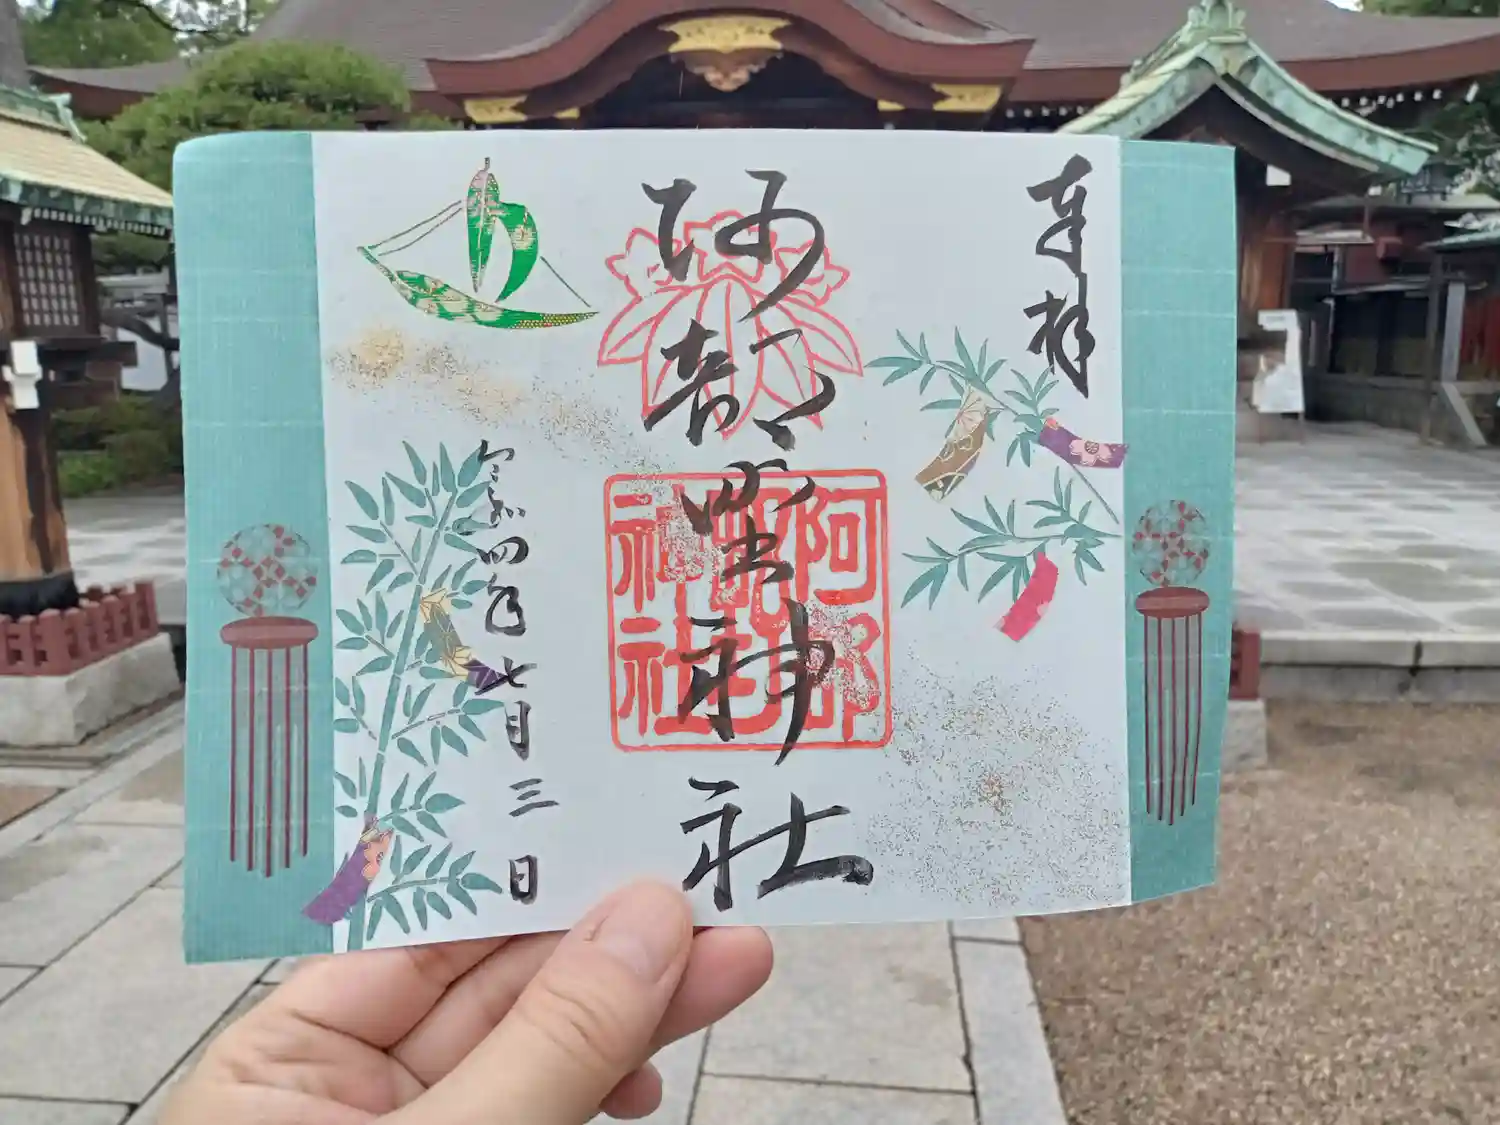 奉拝
阿部野神社
阿部野神社
令和四年七月三日